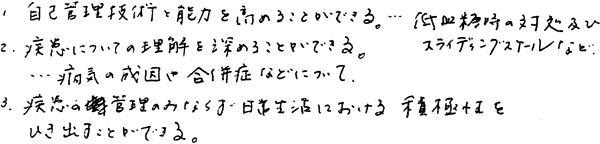 1. 自己管理技術と能力を高めることができる。… 低血糖時の対処及び
スライディングスケールなど.
2. 疾患についての理解を深めることができる。
… 病気の成因や合併症などについて.
3. 疾患の管理のみならず日常生活における積極性を
ひき出すことができる。